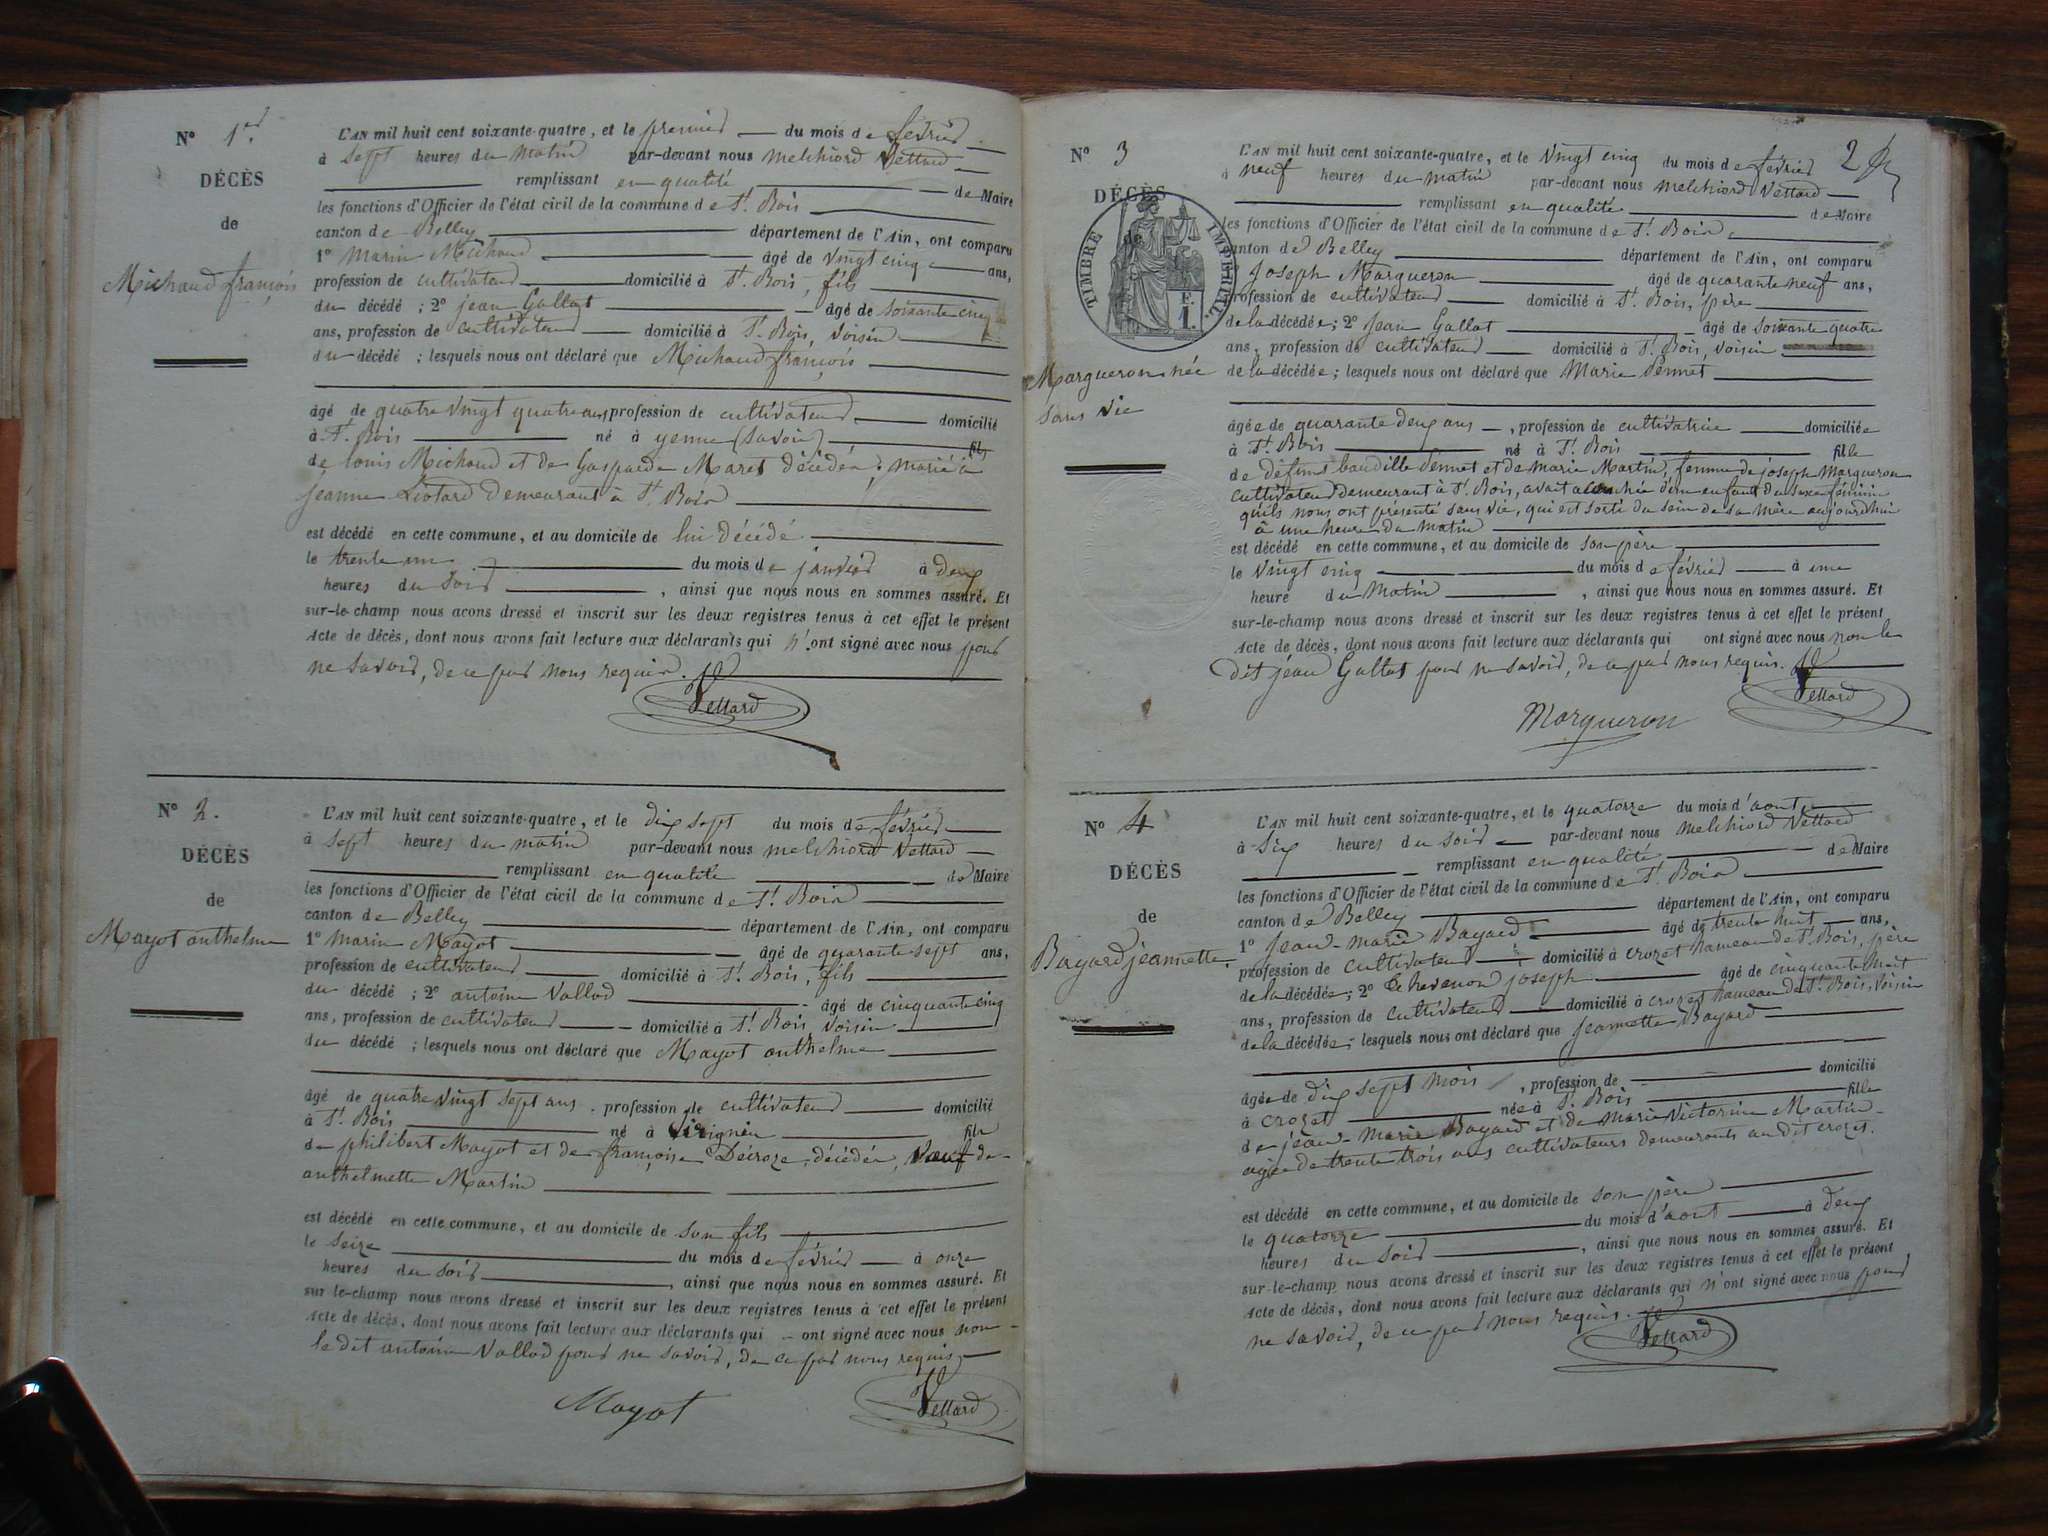 N° 1er.
DÉCÈS
de
Michaud françois
L'AN mil huit cent soixante-quatre, et le premier du mois de février
à sept heures du matin par-devant nous melchiord Vettard
remplissant en qualité de Maire
les fonctions d'Officier de l'état civil de la commune de St. Bois
canton de Belley département de l'Ain, ont comparu
1° Marin Michaud âgé de vingt cinq ans,
profession de cultivateur domicilié à St. Bois, fils
du décédé ; 2° jean Gallat âgé de soixante cinq
ans, profession de cultivateur domicilié à St. Bois, voisin
du décédé ; lesquels nous ont déclaré que Michaud françois
âgé de quatre vingt quatre ans, profession de cultivateur domicilié
à St. Bois né à yenne (Savoie) fils
de louis Michaud et de Gasparde Maret décédés, marié à
jeanne Liotard demeurant à St. Bois
est décédé en cette commune, et au domicile de lui décédé
le trente un du mois de janvier à deux
heures du soir , ainsi que nous nous en sommes assuré. Et
sur-le-champ nous avons dressé et inscrit sur les deux registres tenus à cet effet le présent
Acte de décès, dont nous avons fait lecture aux déclarants qui n'ont signé avec nous pour
ne savoir, de ce par nous requis.
Vettard
N° 2.
DÉCÈS
de
Mayot anthelme
L'AN mil huit cent soixante-quatre, et le dix sept du mois de février
à sept heures du matin par-devant nous melchiord Vettard
remplissant en qualité de Maire
les fonctions d'Officier de l'état civil de la commune de St. Bois
canton de Belley département de l'Ain, ont comparu
1° Marin Mayot âgé de quarante sept ans,
profession de cultivateur domicilié à St. Bois, fils
du décédé ; 2° antoine Vallod âgé de cinquante cinq
ans, profession de cultivateur domicilié à St. Bois, voisin
du décédé ; lesquels nous ont déclaré que Mayot anthelme
âgé de quatre vingt sept ans, profession de cultivateur domicilié
à St. Bois né à Virignin fils
de philibert Mayot et de françoise Décroze, décédés, veuf de
anthelmette Martin
est décédé en cette commune, et au domicile de son fils
le seize du mois de février à onze
heures du soir , ainsi que nous nous en sommes assuré. Et
sur-le-champ nous avons dressé et inscrit sur les deux registres tenus à cet effet le présent
Acte de décès, dont nous avons fait lecture aux déclarants qui ont signé avec nous non
le dit antoine Vallod pour ne savoir, de ce par nous requis
Mayot
Vettard
2
N° 3
DÉCÈS
TIMBRE IMPÉRIAL
F.
1.
Margueron née
sans vie
L'AN mil huit cent soixante-quatre, et le vingt cinq du mois de février
à neuf heures du matin par-devant nous melchiord Vettard
remplissant en qualité de Maire
les fonctions d'Officier de l'état civil de la commune de St. Bois
canton de Belley département de l'Ain, ont comparu
Joseph Margueron âgé de quarante neuf ans,
profession de cultivateur domicilié à St. Bois, père
de la décédée ; 2° jean Gallat âgé de soixante quatre
ans, profession de cultivateur domicilié à St. Bois, voisin
de la décédée ; lesquels nous ont déclaré que Marie Pennet
âgée de quarante deux ans , profession de cultivatrice domiciliée
à St. Bois né à St. Bois fille
de défunt baudille Pennet et de marie Martin, femme de joseph Margueron
cultivateur demeurant à St. Bois, avait accouchée d'un enfant du sexe féminin
qu'ils nous ont présenté sans vie, qui est sorti du sein de sa mère aujourd'hui
à une heure du matin
est décédé en cette commune, et au domicile de son père
le vingt cinq du mois de février à une
heure du matin , ainsi que nous nous en sommes assuré. Et
sur-le-champ nous avons dressé et inscrit sur les deux registres tenus à cet effet le présent
Acte de décès, dont nous avons fait lecture aux déclarants qui ont signé avec nous non le
dit jean Gallat pour ne savoir, de ce par nous requis.
Margueron
Vettard
N° 4
DÉCÈS
de
Bayard jeannette
L'AN mil huit cent soixante-quatre, et le quatorze du mois d'aout
à six heures du soir par-devant nous melchiord Vettard
remplissant en qualité de Maire
les fonctions d'Officier de l'état civil de la commune de St. Bois
canton de Belley département de l'Ain, ont comparu
1° jean-marie Bayard âgé de trente huit ans,
profession de cultivateur domicilié à crozet hameau de St. Bois, père
de la décédée ; 2° Chevenon joseph âgé de cinquante huit
ans, profession de cultivateur domicilié à crozet hameau de St. Bois, voisin
de la décédée ; lesquels nous ont déclaré que jeannette Bayard
âgée de dix sept mois , profession de domicilié
à crozet née à St. Bois fille
de jean-Marie Bayard et de Marie Victorine Martin
agée de trente trois ans cultivateurs demeurants au dit crozet.
est décédé en cette commune, et au domicile de son père
le quatorze du mois d'aout à deux
heures du soir , ainsi que nous nous en sommes assuré. Et
sur-le-champ nous avons dressé et inscrit sur les deux registres tenus à cet effet le présent
Acte de décès, dont nous avons fait lecture aux déclarants qui n'ont signé avec nous pour
ne savoir, de ce par nous requis.
Vettard